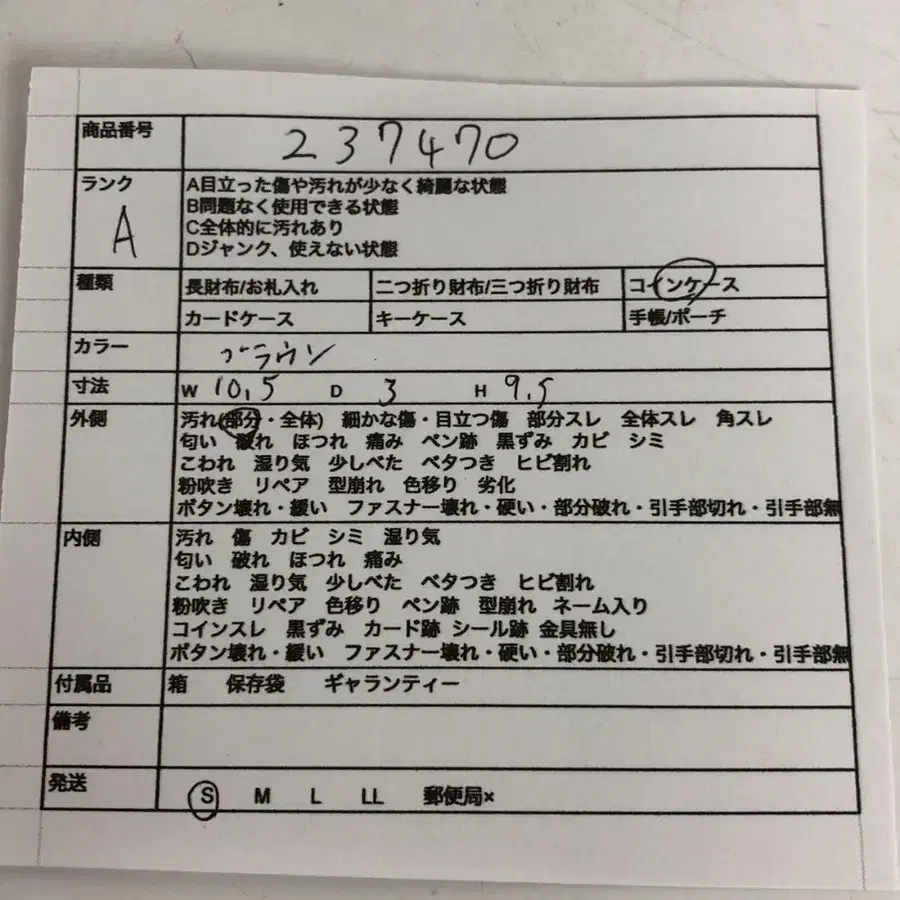 商品番号 237470
ランク A
A目立った傷や汚れが少なく綺麗な状態
B問題なく使用できる状態
C全体的に汚れあり
Dジャンク、使えない状態
種類 長財布/お札入れ 二つ折り財布/三つ折り財布 コインケース
カードケース キーケース 手帳/ポーチ
カラー ブラウン
寸法 W 10.5 D 3 H 9.5
外側 汚れ(部分・全体) 細かな傷・目立つ傷 部分スレ 全体スレ 角スレ
匂い 破れ ほつれ 痛み ペン跡 黒ずみ カビ シミ
こわれ 湿り気 少しべた ベタつき ヒビ割れ
粉吹き リペア 型崩れ 色移り 劣化
ボタン壊れ・緩い ファスナー壊れ・硬い・部分破れ・引手部切れ・引手部無
内側 汚れ 傷 カビ シミ 湿り気
匂い 破れ ほつれ 痛み
こわれ 湿り気 少しべた ベタつき ヒビ割れ
粉吹き リペア 色移り ペン跡 型崩れ ネーム入り
コインスレ 黒ずみ カード跡 シール跡 金具無し
ボタン壊れ・緩い ファスナー壊れ・硬い・部分破れ・引手部切れ・引手部無
付属品 箱 保存袋 ギャランティー
備考
発送 S M L LL 郵便局×